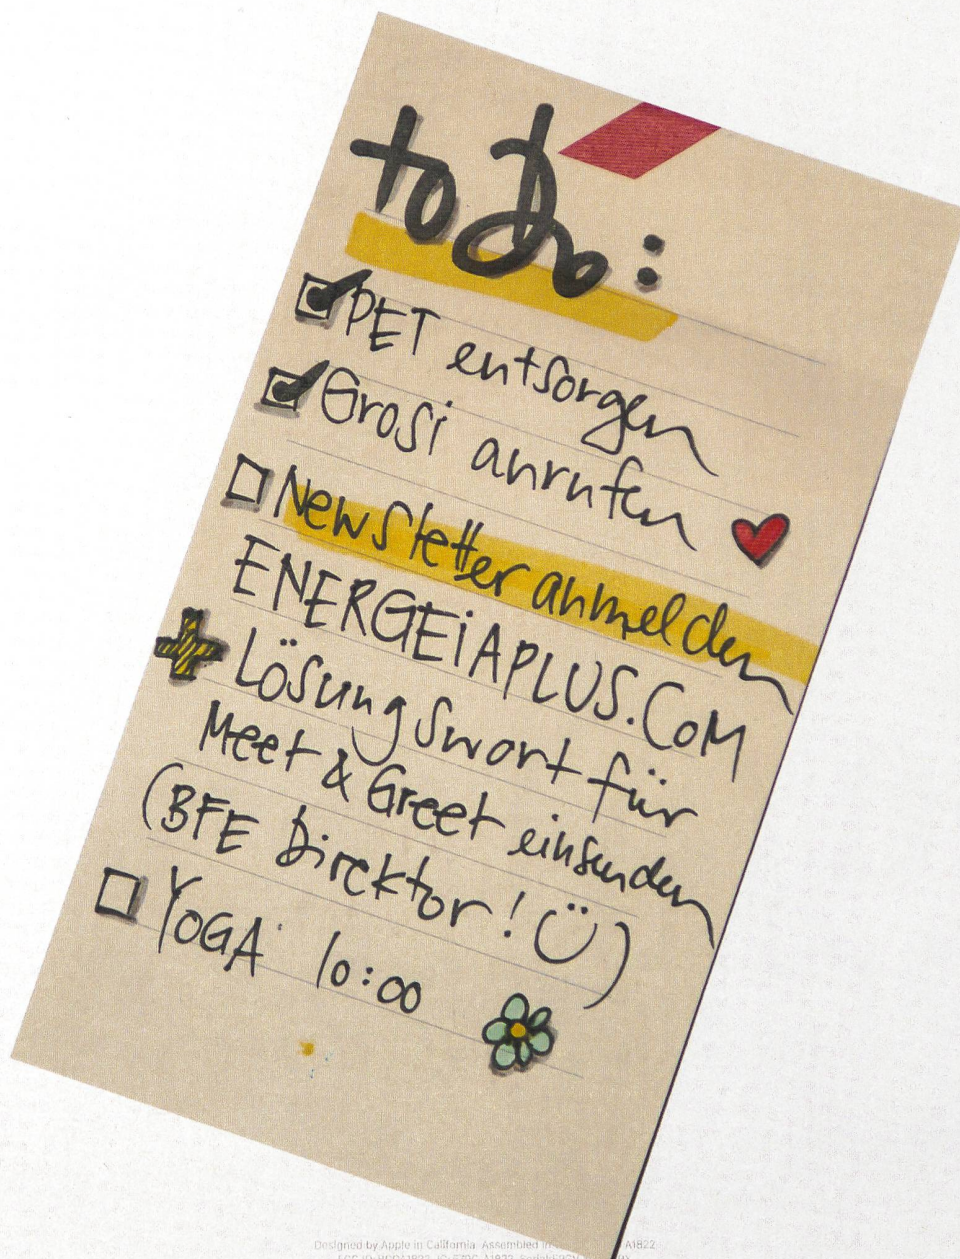 to do:
PET entsorgen
Grosi anrufen
Newsletter anmelden
ENERGEiAPLUS.COM
Lösungswort für
Meet & Greet einsenden
(BFE Direktor! Ü)
YOGA 10:00
Designed by Apple in California Assembled in A1822